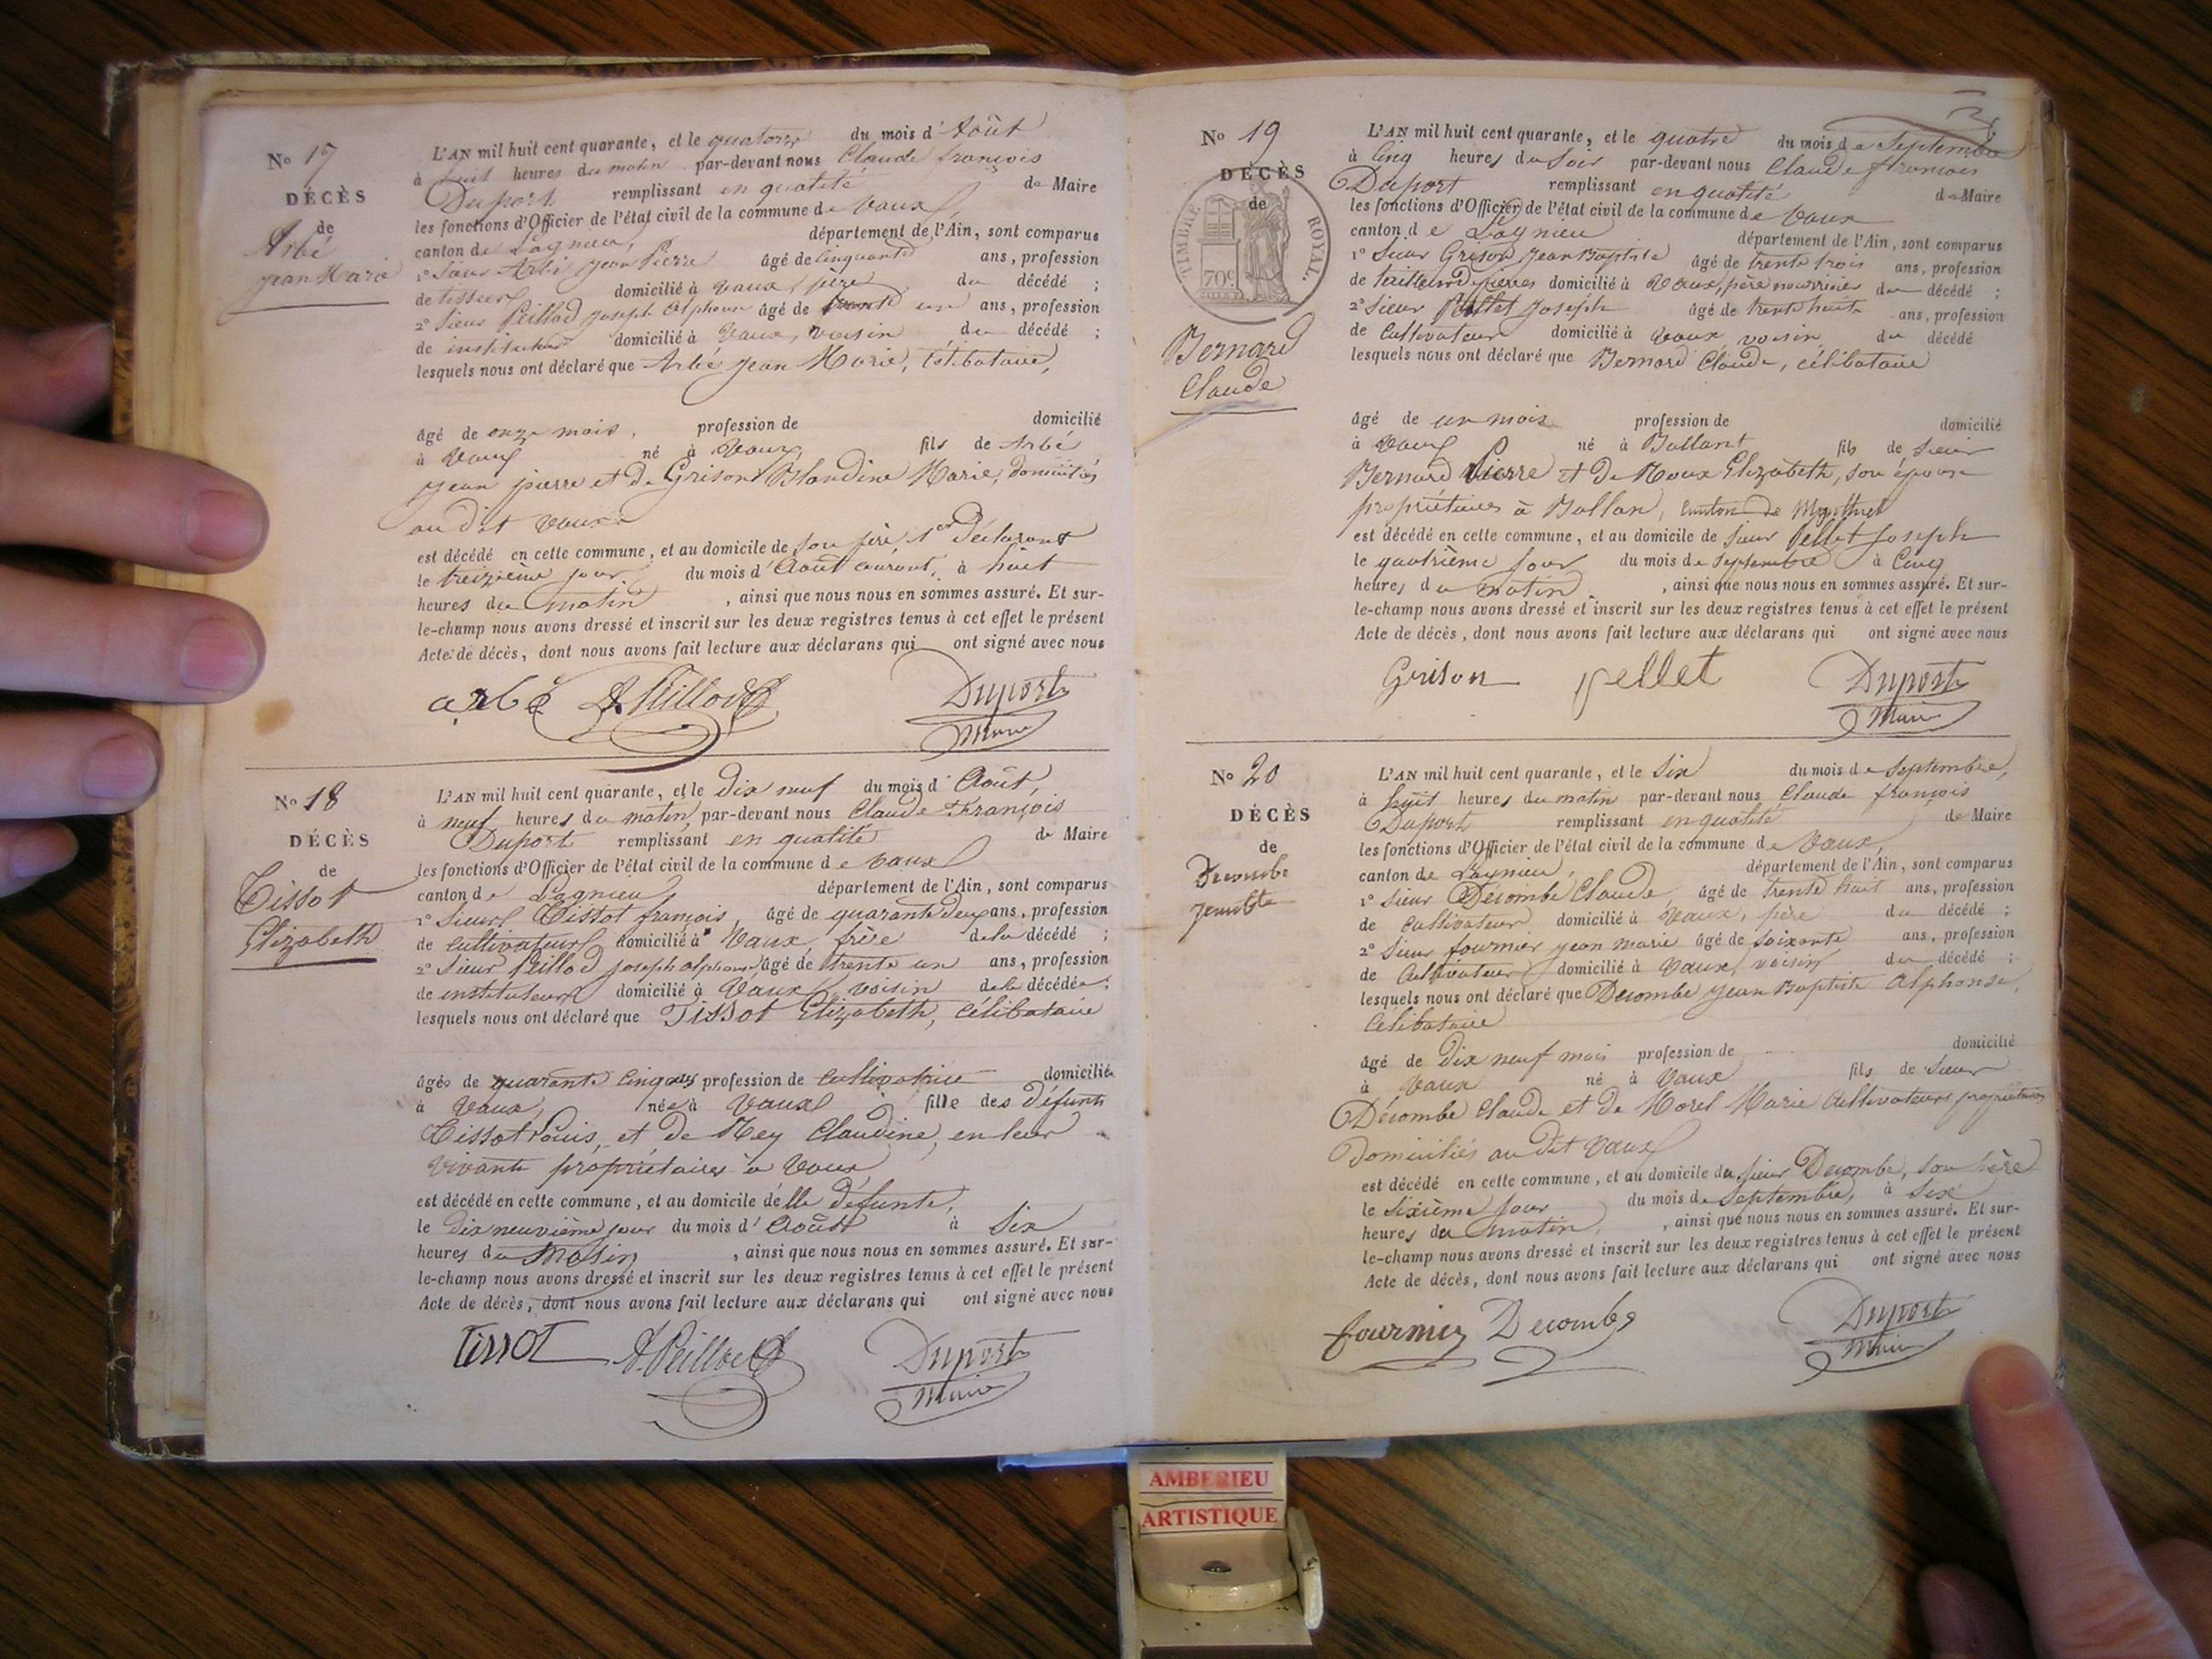 No 17
DÉCÈS
de
Arbé
Jean Marie
L'AN mil huit cent quarante, et le quatorze du mois d'Août
à huit heures du matin par-devant nous Claude françois
Duport remplissant en qualité de Maire
les fonctions d'Officier de l'état civil de la commune de Vaux,
canton de Lagnieu, département de l'Ain, sont comparus
1° Sieur Arbé Jean Pierre âgé de Cinquante ans, profession
de tissier domicilié à Vaux, père du décédé ;
2° Sieur Peillod Joseph Alphonse âgé de trente un ans, profession
de instituteur domicilié à Vaux, voisin du décédé ;
lesquels nous ont déclaré que Arbé Jean Marie, Célibataire,
âgé de onze mois, profession de domicilié
à Vaux né à Vaux fils de Arbé
Jean pierre et de Grison Blandine Marie, domiciliés
au dit Vaux
est décédé en cette commune, et au domicile de son père, 1er Déclarant
le treizième jour du mois d'Août courant, à huit
heures du matin, ainsi que nous nous en sommes assuré. Et sur-
le-champ nous avons dressé et inscrit sur les deux registres tenus à cet effet le présent
Acte de décès, dont nous avons fait lecture aux déclarans qui ont signé avec nous
arbé A. Peillod Duport
Maire
No 18
DÉCÈS
de
Tissot
Elizabeth
L'AN mil huit cent quarante, et le Dix neuf du mois d'Août,
à neuf heures du matin, par-devant nous Claude François
Duport remplissant en qualité de Maire
les fonctions d'Officier de l'état civil de la commune de Vaux
canton de Lagnieu département de l'Ain, sont comparus
1° Sieur Tissot françois, âgé de quarante deux ans, profession
de cultivateur domicilié à Vaux, frère de la décédé ;
2° Sieur Peillod Joseph alphonse âgé de trente un ans, profession
de instituteur domicilié à Vaux, voisin de la décédée ;
lesquels nous ont déclaré que Tissot Elizabeth, célibataire
âgée de quarante cinq ans profession de cultivatrice domicilié
à Vaux, née à Vaux fille des défunts
Tissot Louis, et de Rey Claudine, en leur
vivants propriétaires à Vaux
est décédé en cette commune, et au domicile de lle défunte,
le Dix neuvième jour du mois d'Août à Six
heures du matin, ainsi que nous nous en sommes assuré. Et sur-
le-champ nous avons dressé et inscrit sur les deux registres tenus à cet effet le présent
Acte de décès, dont nous avons fait lecture aux déclarans qui ont signé avec nous
Tissot A. Peillod Duport
Maire
No 19
DÉCÈS
de
TIMBRE ROYAL.
70c
Bernard
Claude
L'AN mil huit cent quarante, et le quatre du mois de Septembre
à Cinq heures du Soir par-devant nous Claude françois
Duport remplissant en qualité de Maire
les fonctions d'Officier de l'état civil de la commune de Vaux
canton de Lagnieu département de l'Ain, sont comparus
1° Sieur Grison Jean Baptiste âgé de trente trois ans, profession
de tailleur de pierres domicilié à Vaux, père nourricier du décédé ;
2° Sieur Pellet Joseph âgé de trente huit ans, profession
de Cultivateur domicilié à Vaux, voisin du décédé
lesquels nous ont déclaré que Bernard Claude, célibataire
âgé de un mois profession de domicilié
à Vaux né à fils de Sieur
Bernard Pierre et de Elizabeth, son épouse
propriétaires à canton de
est décédé en cette commune, et au domicile de Sieur Pellet Joseph
le quatrième jour du mois de Septembre à Cinq
heures du matin, ainsi que nous nous en sommes assuré. Et sur-
le-champ nous avons dressé et inscrit sur les deux registres tenus à cet effet le présent
Acte de décès, dont nous avons fait lecture aux déclarans qui ont signé avec nous
Grison pellet Duport
Maire
No 20
DÉCÈS
de
Decombe
L'AN mil huit cent quarante, et le Six du mois de Septembre,
à huit heures du matin par-devant nous Claude françois
Duport remplissant en qualité de Maire
les fonctions d'Officier de l'état civil de la commune de Vaux,
canton de Lagnieu, département de l'Ain, sont comparus
1° Sieur Decombe Claude, âgé de trente huit ans, profession
de cultivateur domicilié à Vaux, père du décédé ;
2° Sieur fournier Jean marie âgé de soixante ans, profession
de Cultivateur domicilié à Vaux, voisin du décédé ;
lesquels nous ont déclaré que Decombe Jean Baptiste Alphonse,
Célibataire
âgé de dix neuf mois profession de domicilié
à Vaux né à Vaux fils de Sieur
Décombe Claude et de Morel Marie Cultivateurs propriétaires
domiciliés au dit Vaux
est décédé en cette commune, et au domicile du sieur Decombe, son père
le Sixième jour du mois de Septembre, à Six
heures du matin, ainsi que nous nous en sommes assuré. Et sur-
le-champ nous avons dressé et inscrit sur les deux registres tenus à cet effet le présent
Acte de décès, dont nous avons fait lecture aux déclarans qui ont signé avec nous
fournier Decombe Duport
Maire
AMBERIEU
ARTISTIQUE